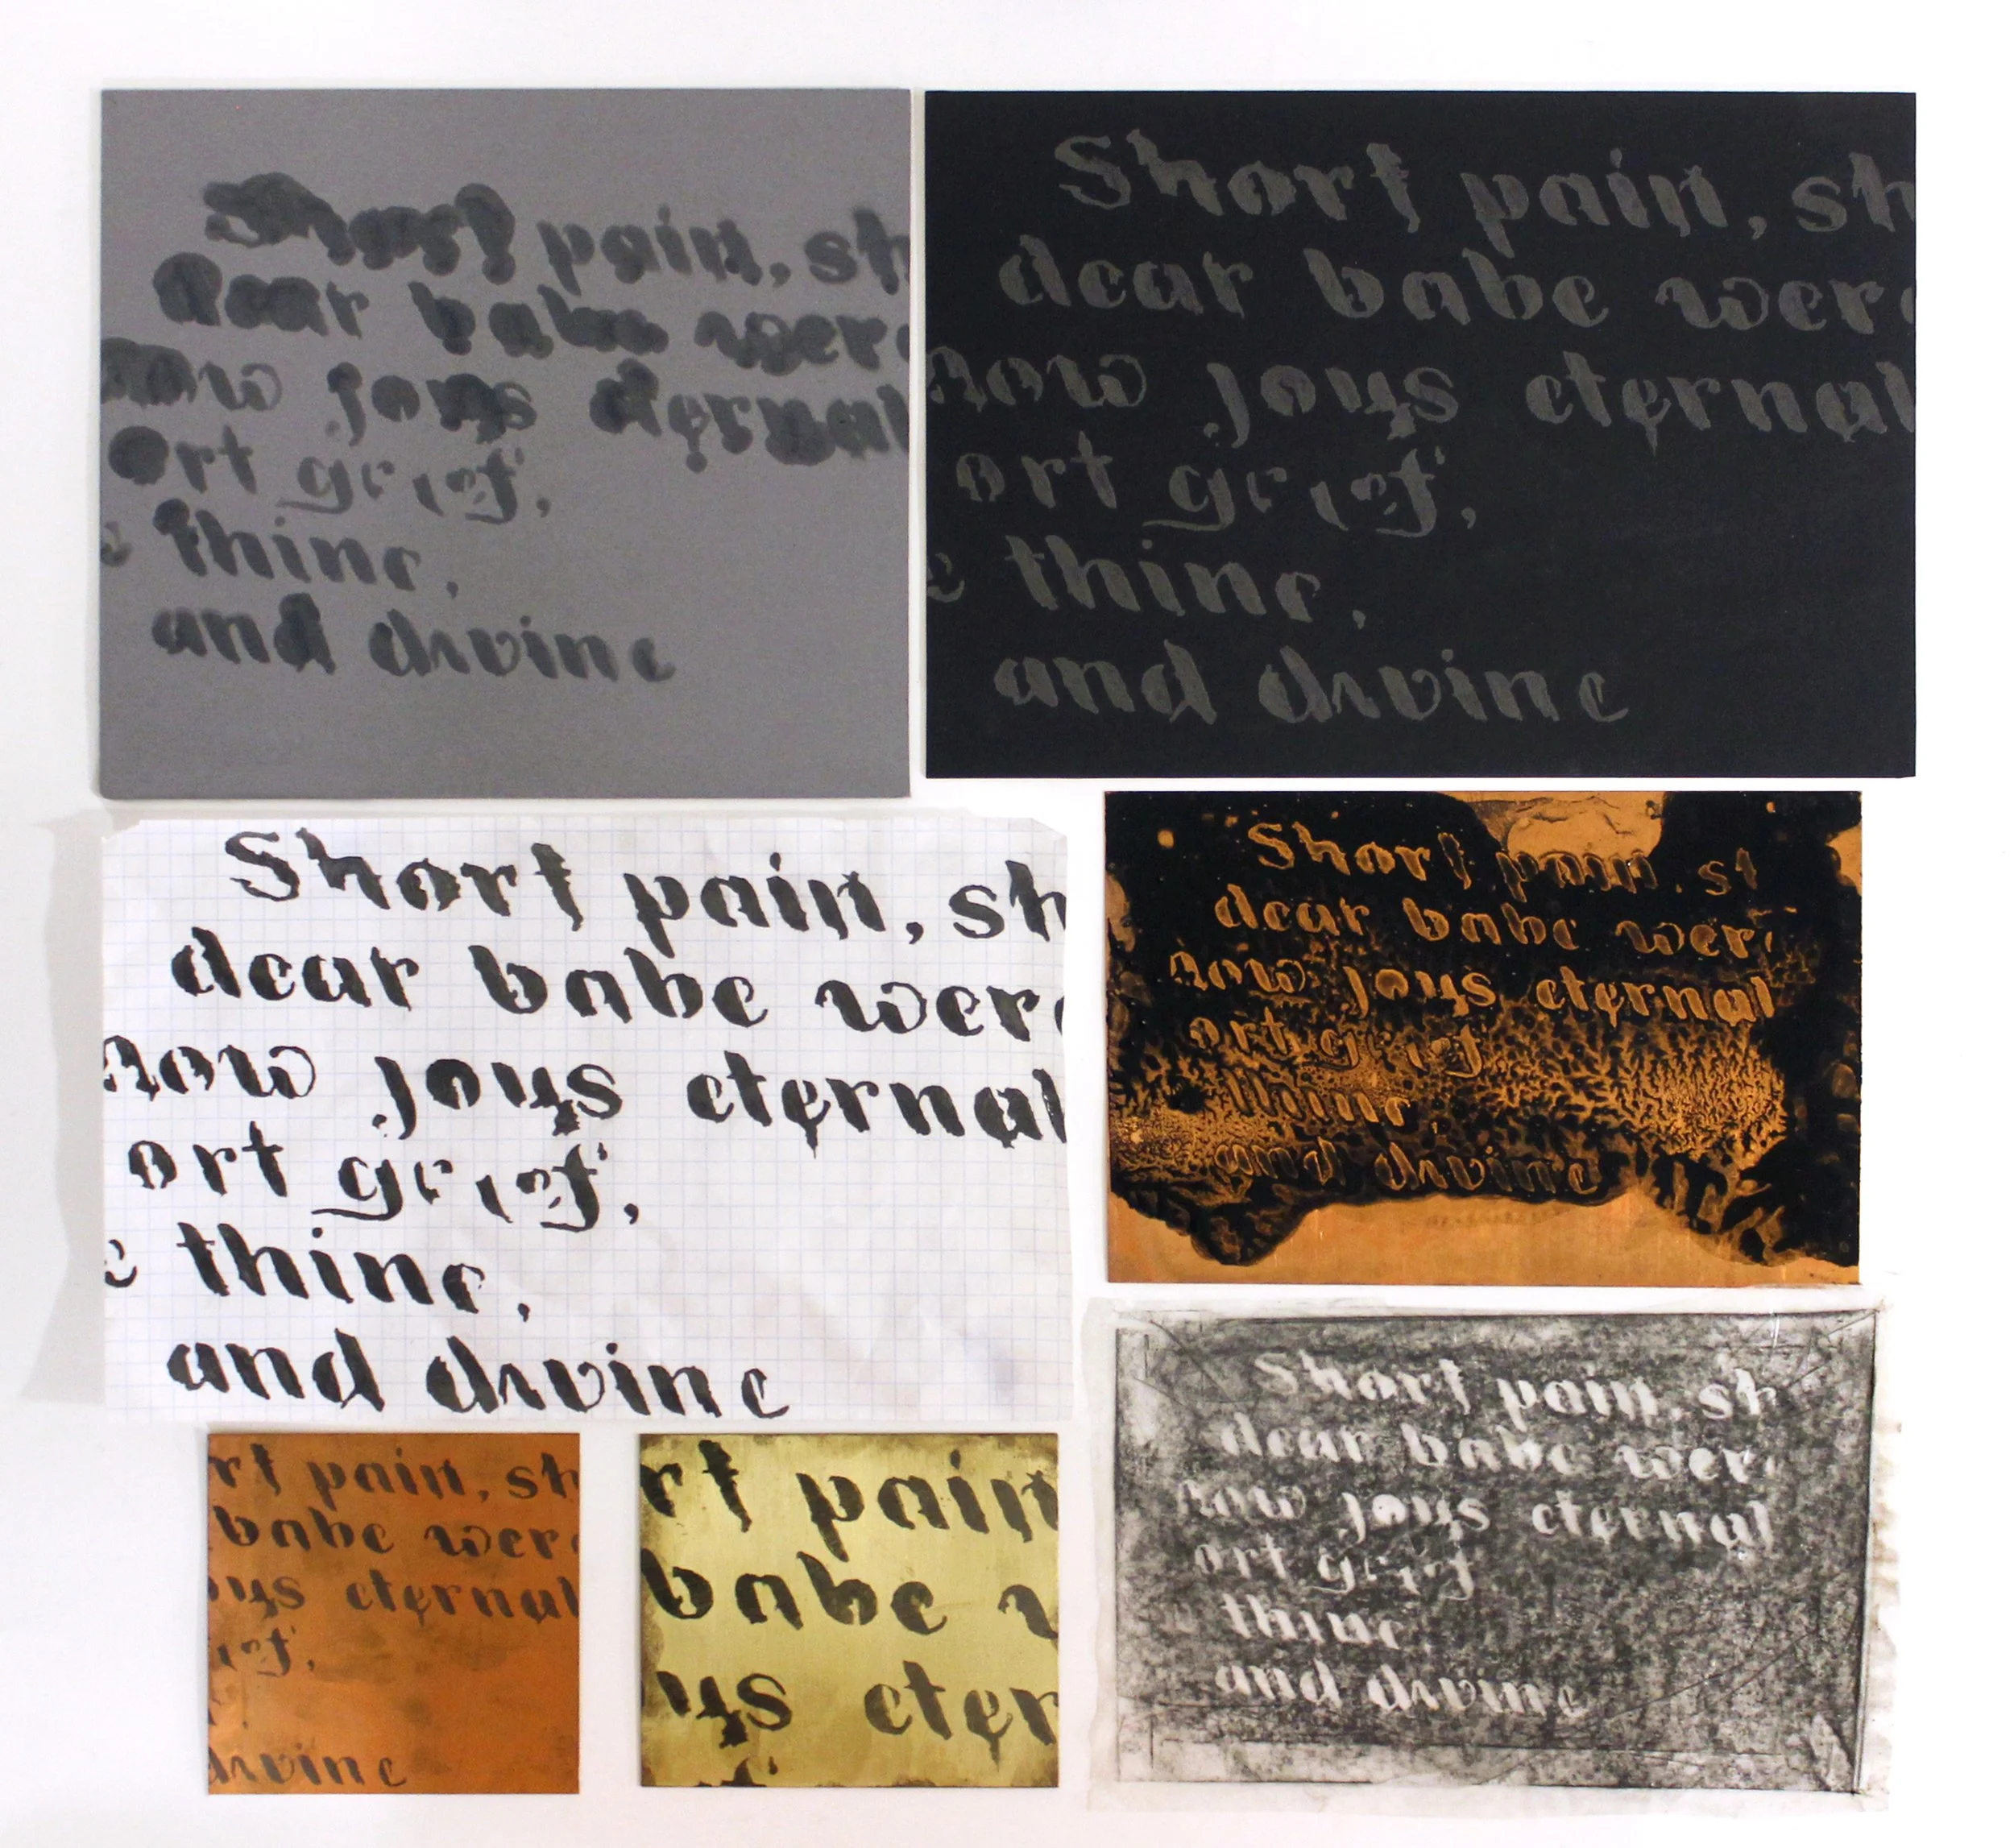 Short pain, sh
dear babe were
now joys eternal
ort grief,
e thine,
and divine
Short pain, sh
dear babe were
now joys eternal
ort grief,
e thine,
and divine
Short pain, sh
dear babe were
now joys eternal
ort grief,
e thine,
and divine
Short pain, st
dear babe wer
now joys eternal
ort grief
thine
and divine
rt pain, sh
babe were
oys eternal
ief,
divine
rt pain
babe
ys eter
Short pain, sh
dear babe wer
now joys eternal
ort grief
thine
and divine